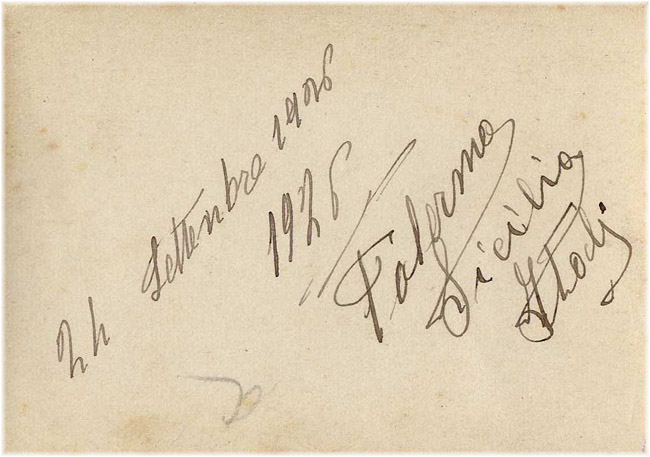 24 Settenbre 1926
1926
Palermo
Sicilia
Italy